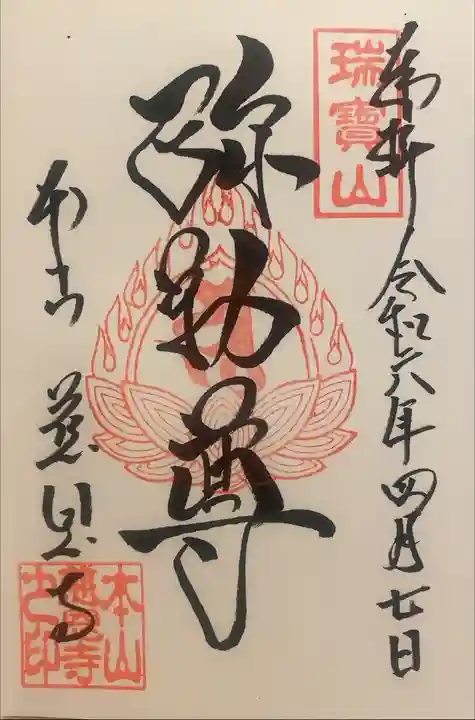 奉拝 令和六年四月七日
瑞寳山
弥勒尊
本山 慈恩寺
本山慈恩寺之印